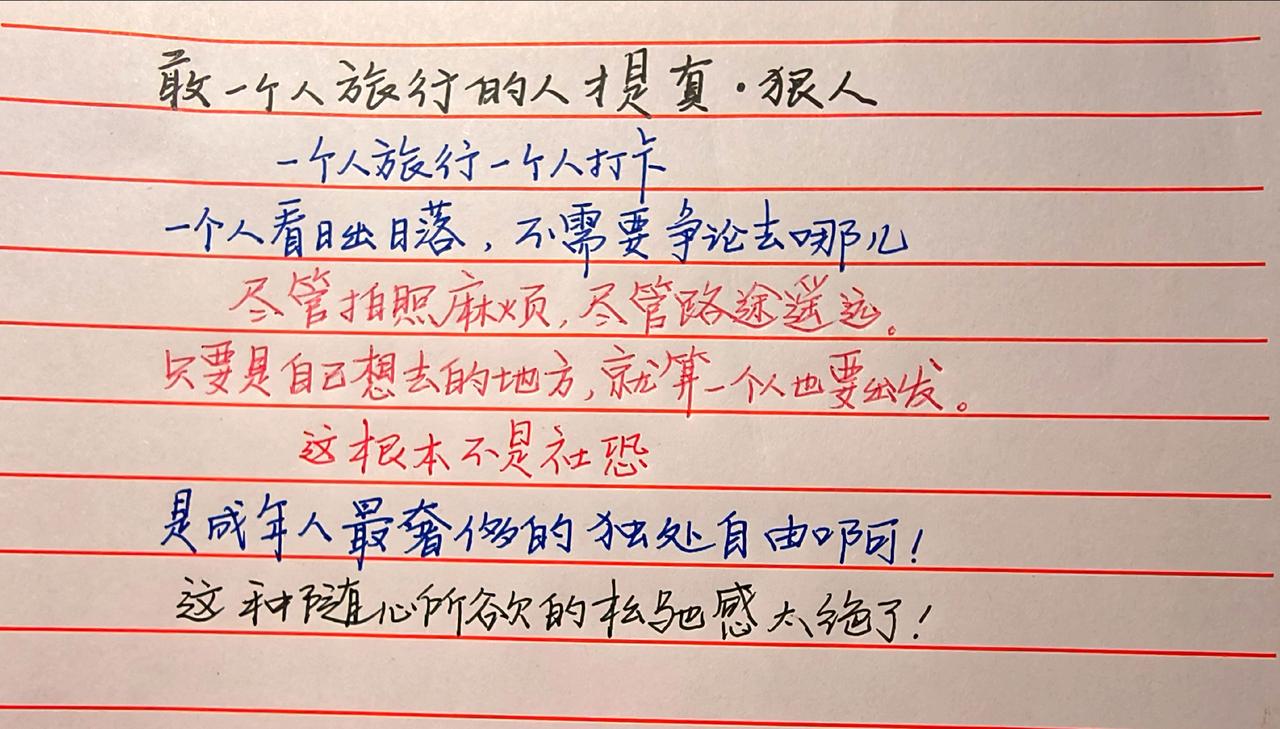 敢一个人旅行的人才是真·狠人
一个人旅行一个人打卡
一个人看日出日落，不需要争论去哪儿
尽管拍照麻烦，尽管路途遥远。
只要是自己想去的地方，就算一个人也要出发。
这根本不是社恐
是成年人最奢侈的独处自由啊！
这种随心所欲的松驰感太绝了！